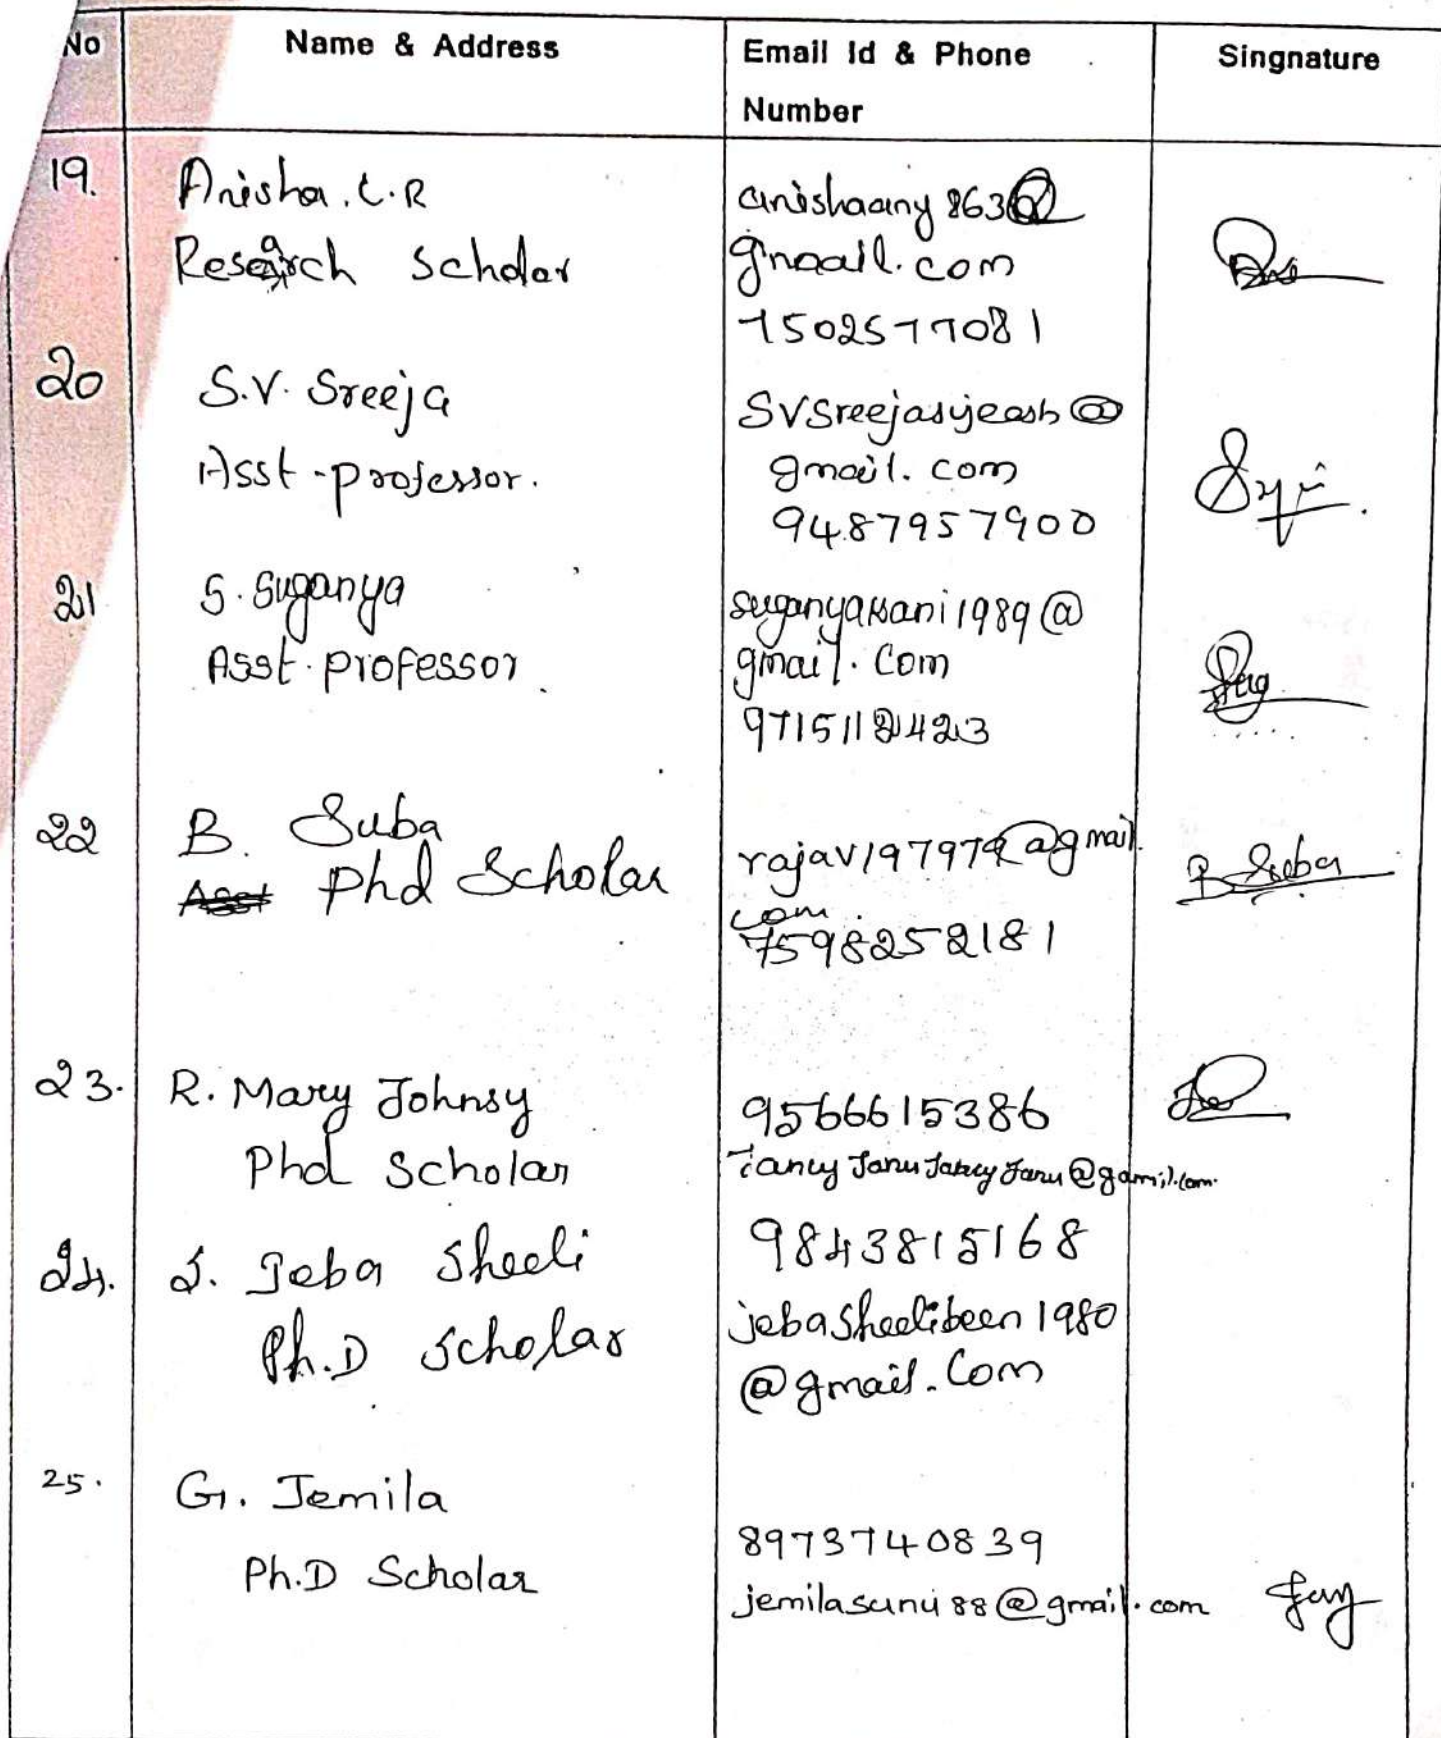 No Name & Address Email Id & Phone Number Singnature
19. Anisha. C.R
Research Scholar
anishaany863@
gmail.com
7502577081
20 S.V. Sreeja
Asst-professor.
SVSreejasijeash@
gmail.com
9487957900
21 S. Suganya
Asst. professor.
suganyakani1989@
gmail.com
9715112423
22 B. Suba
Asst Phd Scholar
rajav197979@gmail.
com
7598252181
B Suba
23. R. Mary Johnsy
Phd Scholar
9566615386
@gamil.com.
24. J. Jeba Sheeli
Ph.D Scholar
9843815168
jebasheelibeen1980
@gmail.com
25. G. Jemila
Ph.D Scholar
8973740839
jemilasunu88@gmail.com